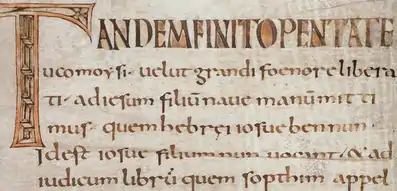 TANDEM FINITO PENTATE
uco moysi· uelut grandi foenore libera
ti· ad iesum filiū naue manū mitti
mus· quem hebręi iosue bennun·
Idest iosue filium nun uocant· & ad
iudicum librū quem sopthim appel